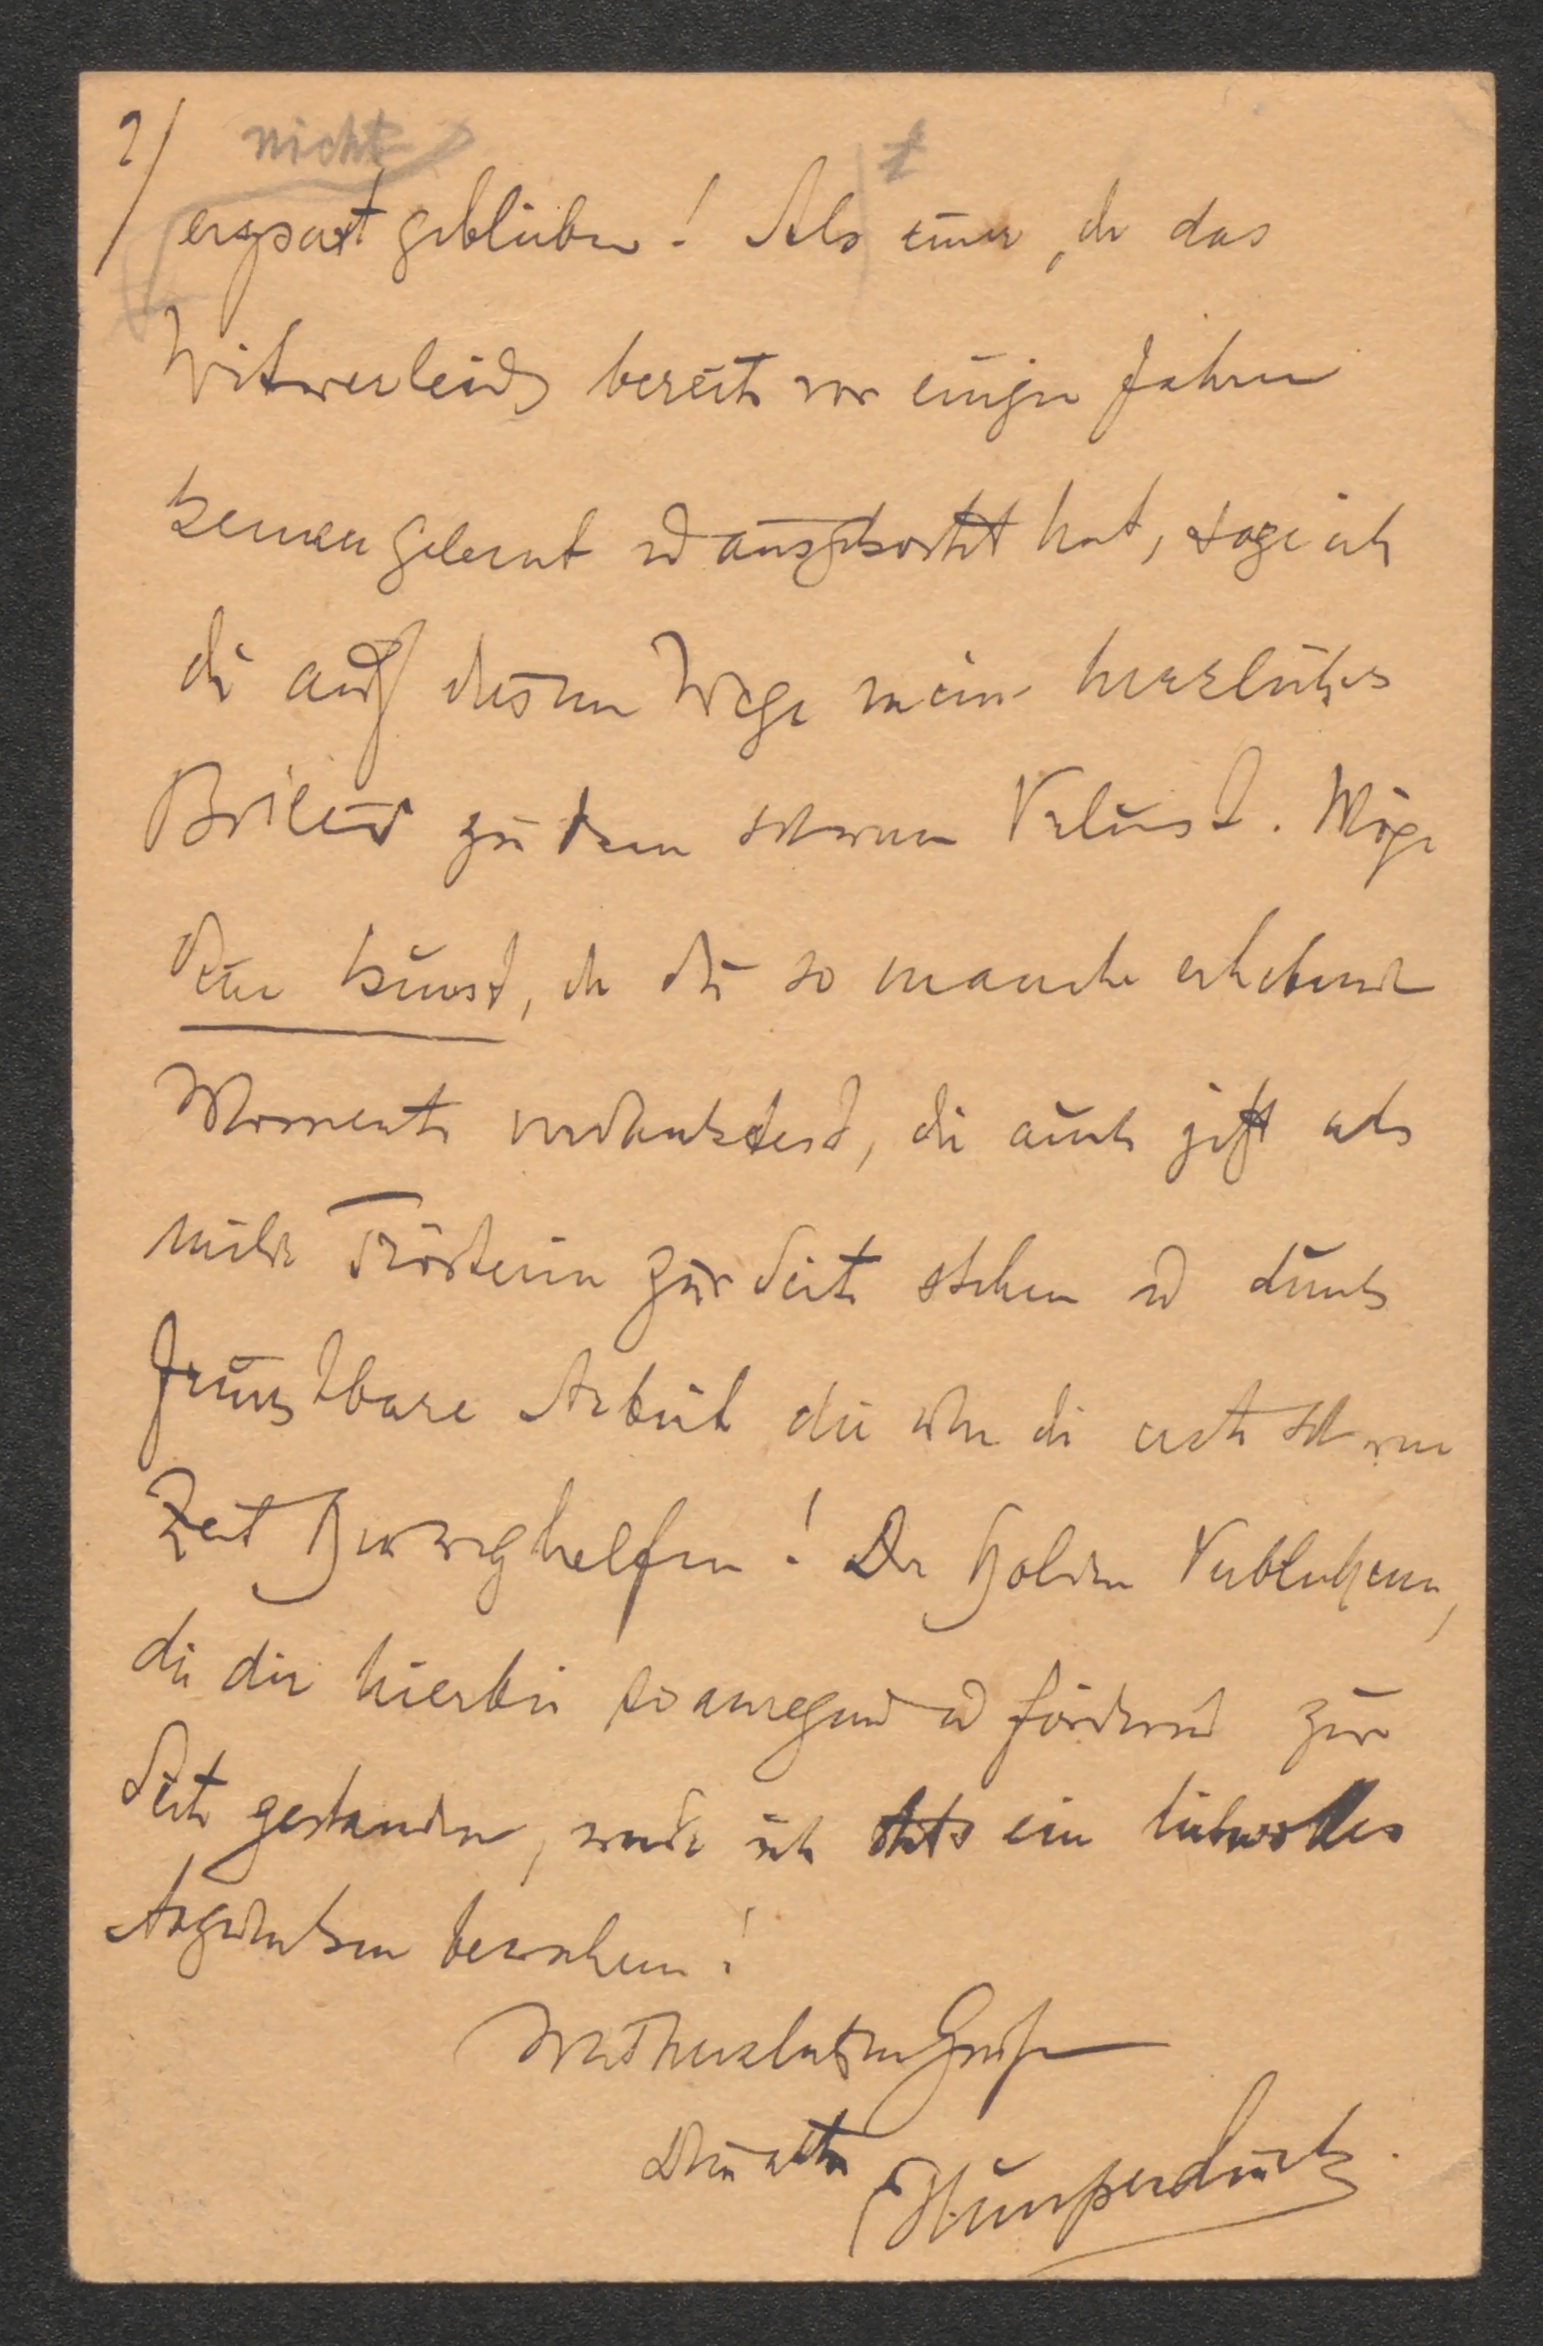 2/ nicht
erspart geblieben! Als einer, der das
Witwerleid bereits vor einigen Jahren
kennen gelernt und ausgekostet hat, sage ich
dir auf diesem Wege mein herzliches
Beileid zu dem schweren Verlust. Möge
deine Kunst, der du so manche erhebende
Momente verdanktest, dir auch jetzt als
milde Trösterin zur Seite stehen und durch
fruchtbare Arbeit dir über die erste schwere
Zeit hinweghelfen! Der holden Verblichenen,
die dir hierbei so anregend und fördernd zur
Seite gestanden, werde ich stets ein liebevolles
Angedenken bewahren!
Mit herzlichen Grüßen
Dein alter
E Humperdinck